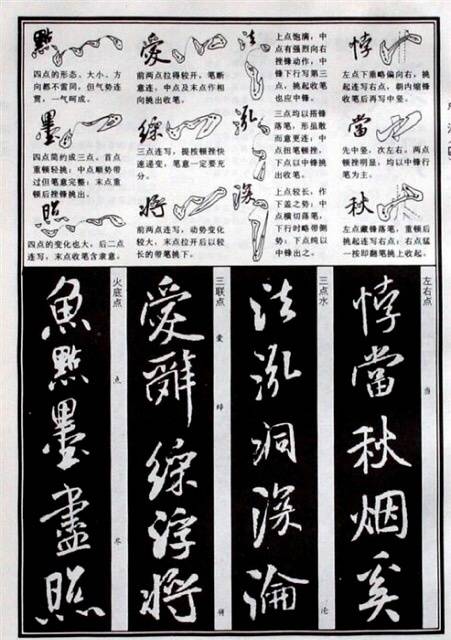 悖
左点下重略偏向右，挑
起连写右点，朝内缩锋
收笔后再写中竖。
當
先中竖，次左右。两点
顿挫明显，均以中锋行
笔为主。
秋
左点藏锋落笔，重顿后
挑起连写右点；右点猛
一按即翻笔挑上收起。
法
上点饱满，中
点有强烈向右
挫锋动作，中
锋下行写第三
点，挑起收笔
也应中锋。
泓
三点均以搭锋
落笔，形虽散
而意更连，中
点扭笔顿挫，
下点以中锋
挑出收笔。
深
上点较长，作
下盖之势；中
点横切落笔，
下行时略带侧
势；下点纯以
中锋出之。
愛
前两点拉得较开，笔断
意连，中点及末点作相
向挑出收笔。
綵
三点连写，提按顿挫快
速递变，笔意一定要充
分。
将
前两点连写，动势变化
较大，末点拉开后以较
长的带笔挑下。
點
四点的形态、大小、方
向都不雷同，但气势连
贯，一气呵成。
墨
四点简约成三点。首点
重顿轻挑；中点顺势带
过但笔意完整；末点重
顿后挫锋挑出。
照
四点的变化也大，后二点
连写，末点收笔含隶意。
左右点 当
悖當秋烟奚
三点水 沦
法泓洞深淪
三联点 爱
辭綵浮将
愛
火底点 点 尽
魚點墨盡照